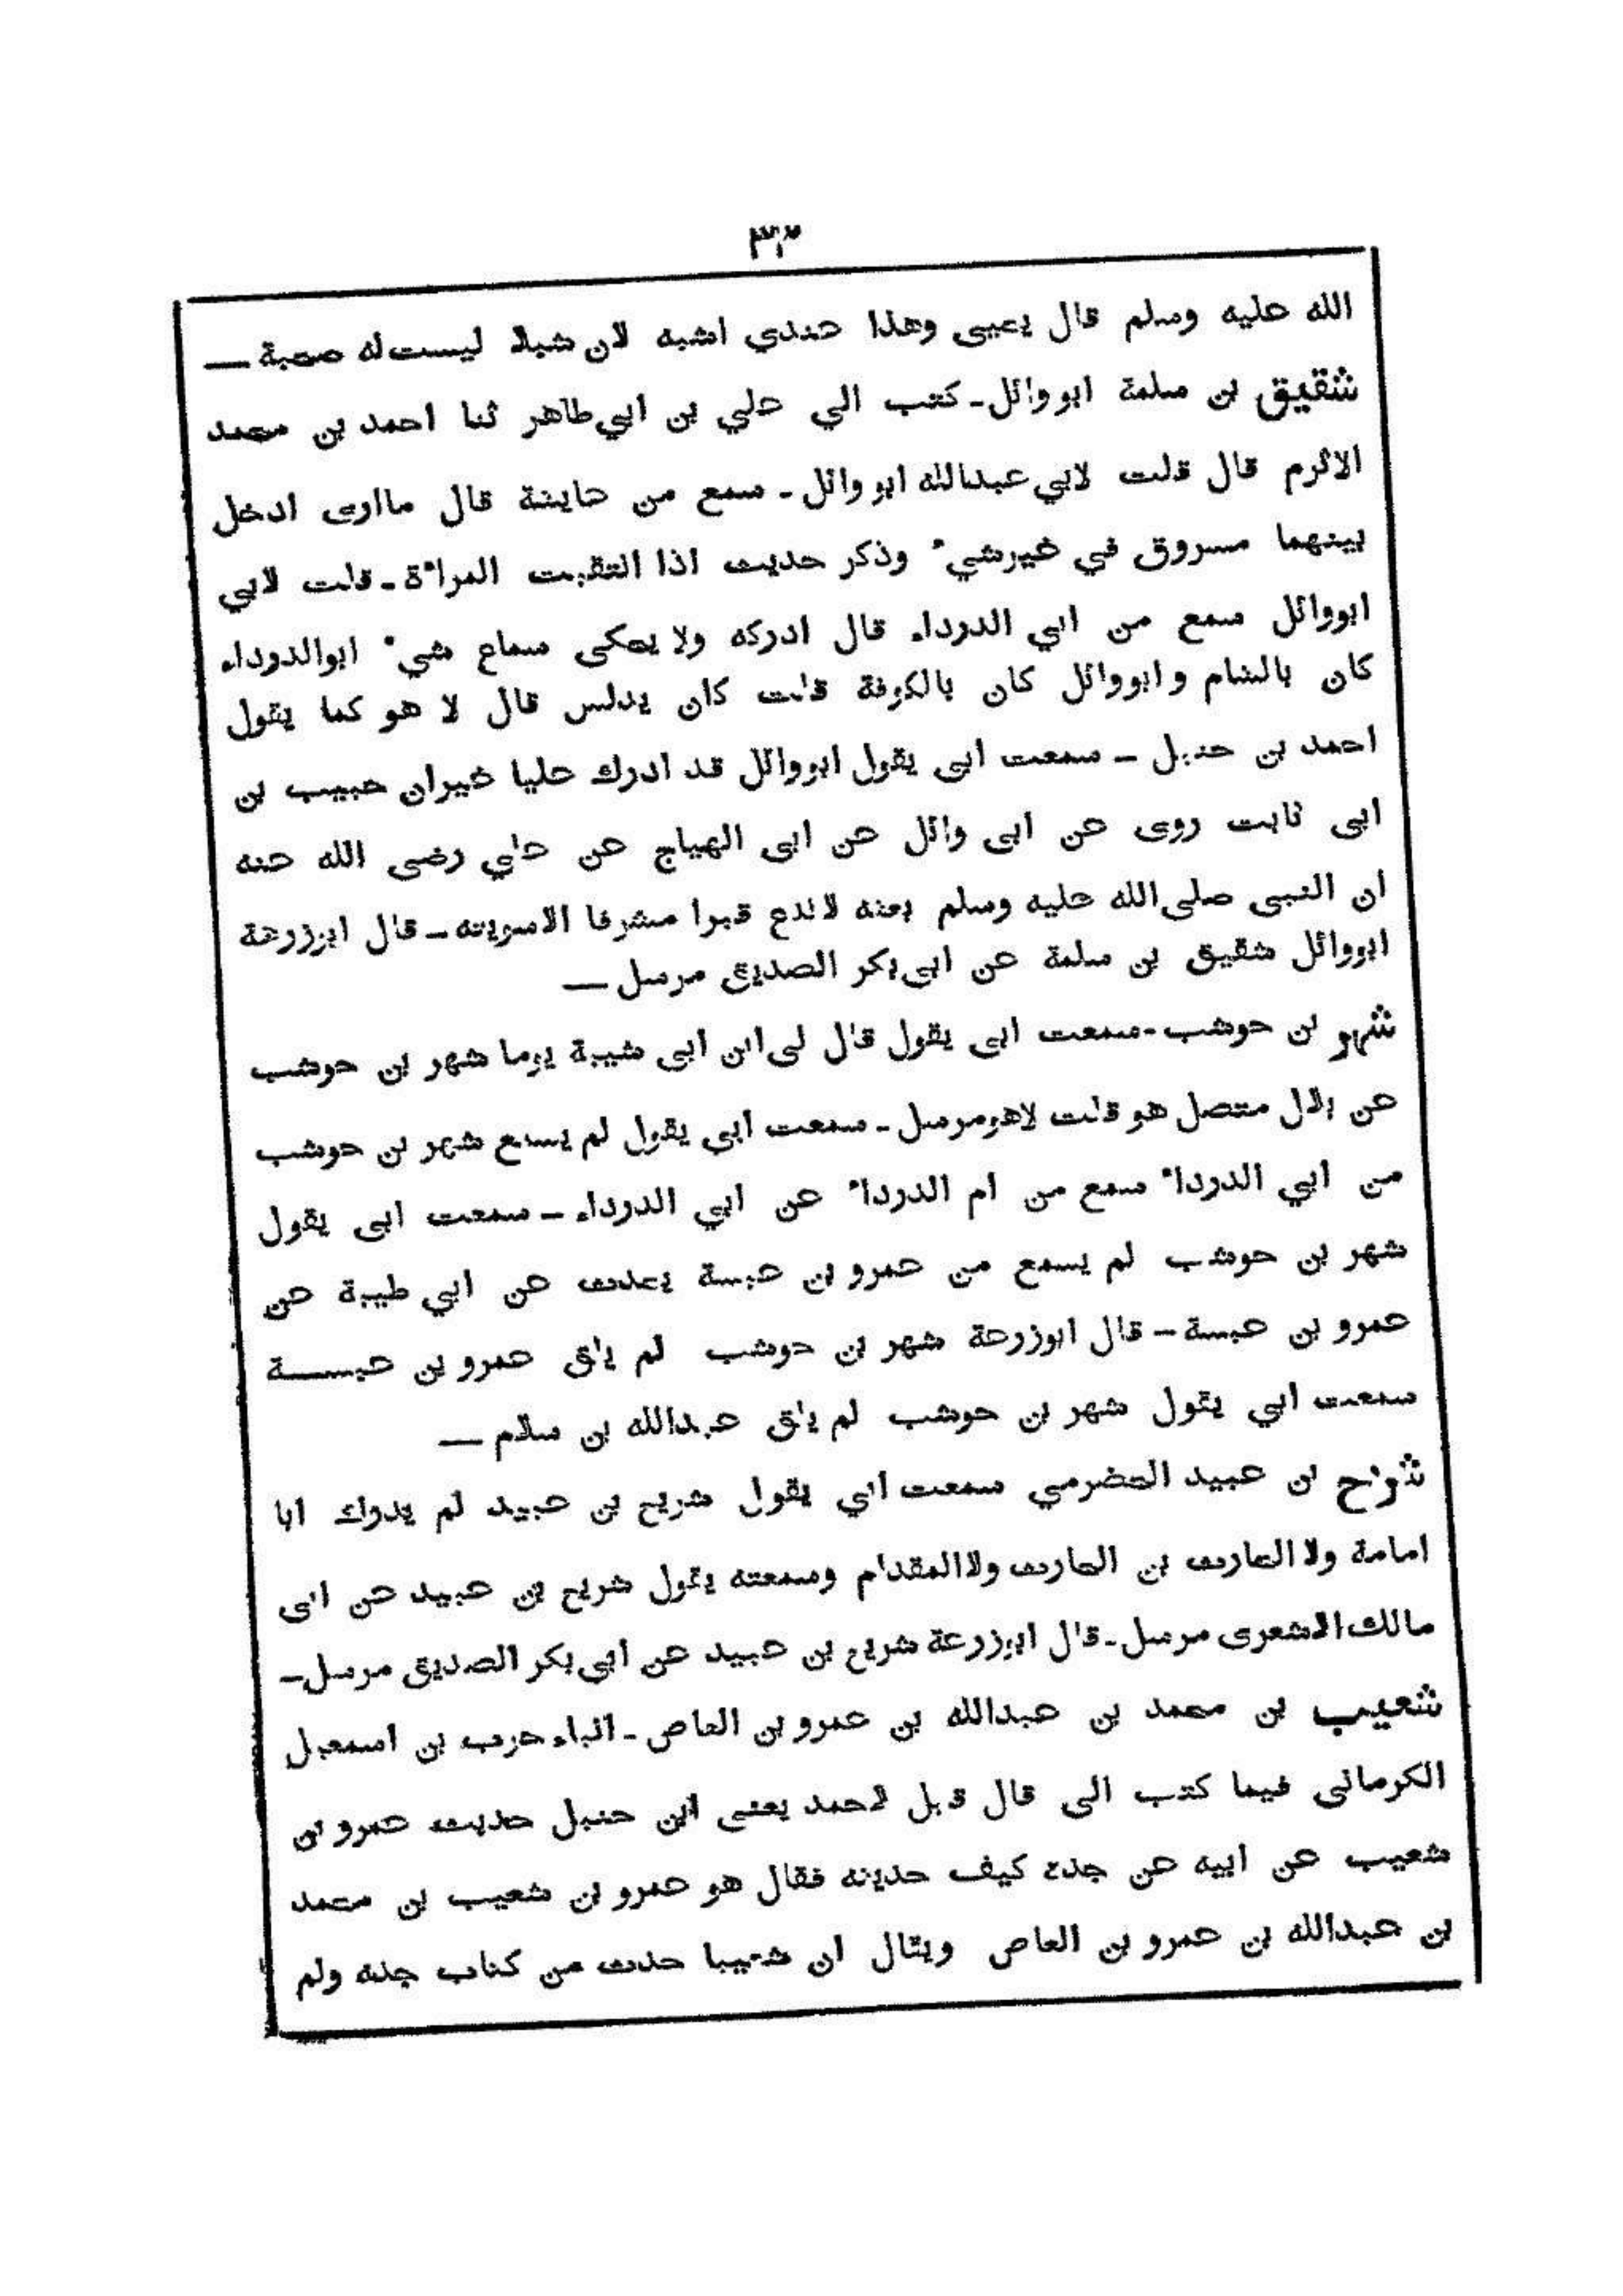 ٣٣
الله عليه وسلم قال يحيى وهذا عندي اشبه لان شبلا ليست له صحبة —
شقيق بن سلمة ابو وائل - كتب الي علي بن ابي طاهر ثنا احمد بن محمد
الاثرم قال قلت لابي عبدالله ابو وائل - سمع من عايشة قال ما ارى ادخل
بينهما مسروق في غير شيء وذكر حديث اذا انتقبت المراءة - قلت لابي
ابو وائل سمع من ابي الدرداء قال ادركه ولا يحكى سماع شيء ابوالدرداء
كان بالشام و ابو وائل كان بالكوفة قلت كان يدلس قال لا هو كما يقول
احمد بن حنبل — سمعت ابى يقول ابو وائل قد ادرك عليا غيران حبيب بن
ابى ثابت روى عن ابى وائل عن ابى الهياج عن علي رضى الله عنه
ان النبى صلى الله عليه وسلم بعثه لاتدع قبرا مشرفا الاسويته — قال ابوزرعة
ابو وائل شقيق بن سلمة عن ابى بكر الصديق مرسل —
شهر بن حوشب - سمعت ابى يقول قال لى ابن ابى شيبة يوما شهر بن حوشب
عن بلال متصل هو قلت لاهو مرسل - سمعت ابي يقول لم يسمع شهر بن حوشب
من ابي الدرداء سمع من ام الدرداء عن ابي الدرداء — سمعت ابى يقول
شهر بن حوشب لم يسمع من عمرو بن عبسة يحدث عن ابي طيبة عن
عمرو بن عبسة — قال ابوزرعة شهر بن حوشب لم يلق عمرو بن عبسة
سمعت ابي يقول شهر بن حوشب لم يلق عبدالله بن سلام —
شريح بن عبيد الحضرمي سمعت ابي يقول شريح بن عبيد لم يدرك ابا
امامة ولا الحارث بن الحارث ولا المقدام وسمعته يقول شريح بن عبيد عن ابى
مالك الاشعرى مرسل - قال ابوزرعة شريح بن عبيد عن ابى بكر الصديق مرسل —
شعيب بن محمد بن عبدالله بن عمرو بن العاص - انباء حرب بن اسمعيل
الكرمانى فيما كتب الى قال قيل لاحمد يعنى ابن حنبل حديث عمرو بن
شعيب عن ابيه عن جده كيف حديثه فقال هو عمرو بن شعيب بن محمد
بن عبدالله بن عمرو بن العاص ويقال ان شعيبا حدث من كتاب جده ولم